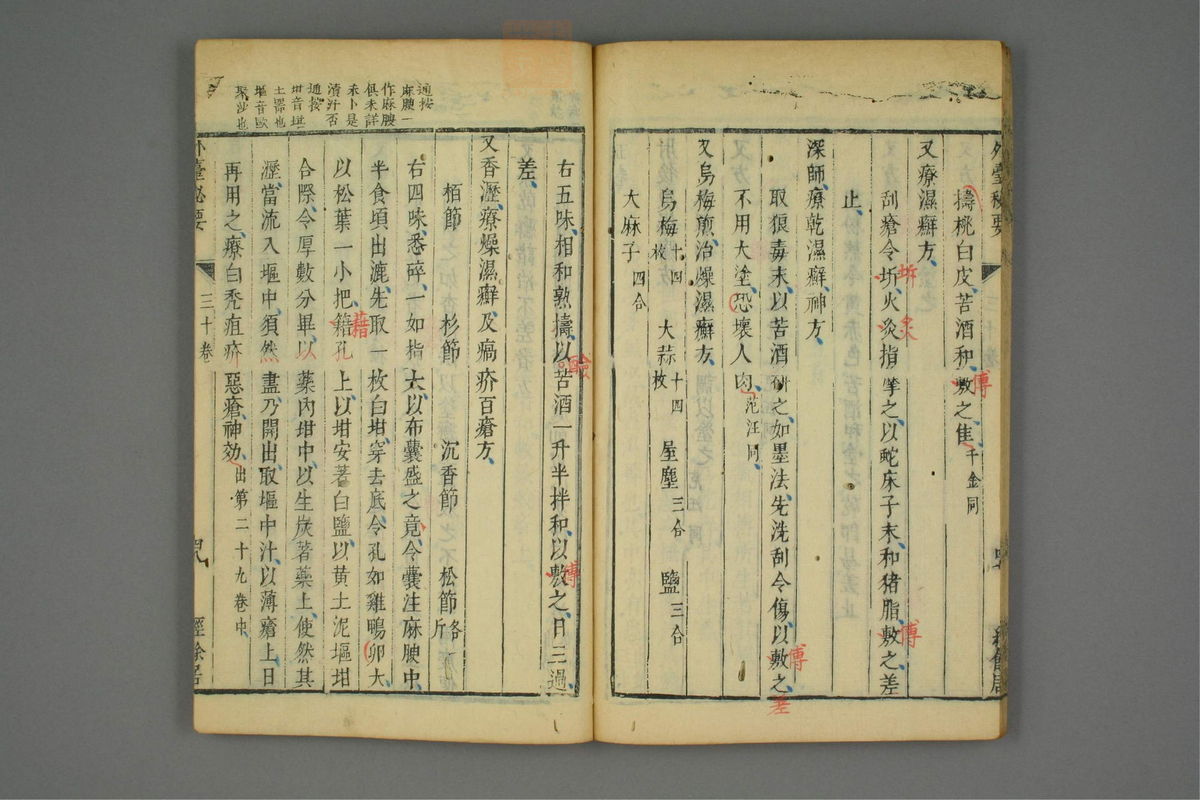 外臺秘要
擣桃白皮苦酒和敷之佳千金同
傅
又療濕癬方
刮瘡令圻火灸指摩之以蛇床子末和猪脂敷之差
坼
炙
傅
止
深師療乾濕癬神方
取狼毒末以苦酒研之如墨法先洗刮令傷以敷之
傅
差
不用大塗恐壞人肉范汪同
又烏梅煎治燥濕癬方
烏梅十四枚 大蒜十四枚 屋塵三合 鹽三合
大麻子四合
右五味相和熟擣以苦酒一升半拌和以敷之日三過
傅
差
又香瀝療燥濕癬及瘑疥百瘡方
栢節 杉節 沉香節 松節各斤
右四味悉碎一如指大以布囊盛之竟令囊注麻腴中
半食頃出漉先取一枚白坩穿去底令孔如雞鴨卵大
以松葉一小把籍孔上以坩安著白鹽以黄土泥堰坩
藉
合際令厚數分畢以藥內坩中以生炭著藥上使然其
瀝當流入堰中須然盡乃開出取堰中汁以薄瘡上日
再用之療白秃疽疥惡瘡神効出第二十九卷中
外臺秘要 三十卷 四八 經餘居
通按
麻腴一
作麻腰
俱未詳
禾卜是
清汁否
通按
坩音堪
土器也
堰音歐
聚沙也